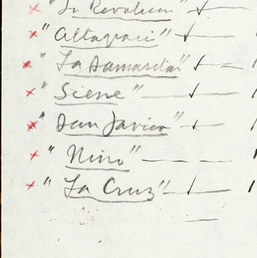 × "La Revolucion" — ✓ —
× "Altagraci" — ✓ —
× "La Samarita" — ✓ —
× "Siene" — ✓ — 1
× "San Javier" — ✓ —
× "Nino" — — — 1
× "La Cruz" — ✓ — 1